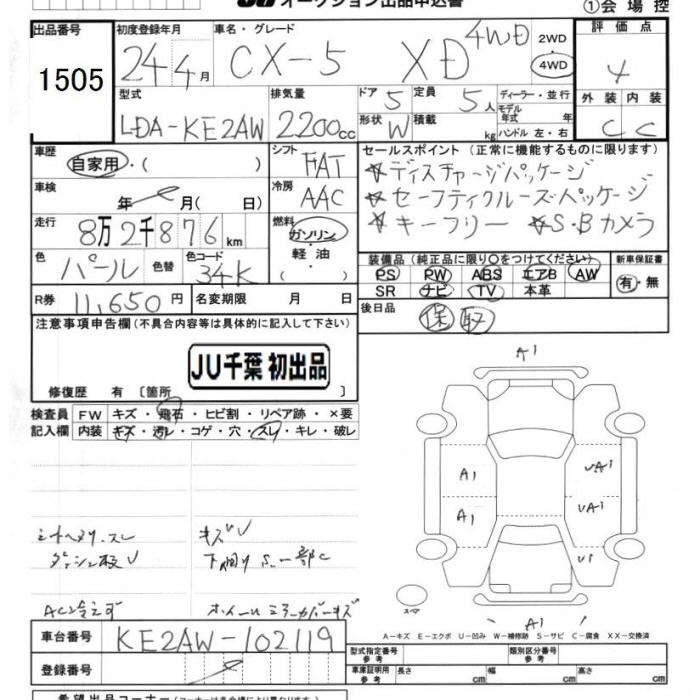 オークション出品申込書
①会場控
出品番号 1505
初度登録年月 24年4月
車名・グレード CX-5 XD 4WD
2WD
4WD
評価点 4
型式 LDA-KE2AW
排気量 2200cc
ドア 5
定員 5人
ディーラー・並行
モデル年式 年
形状 W
積載 kg
ハンドル 左・右
外装 内装
C C
車歴 自家用・( )
シフト FAT
セールスポイント (正常に機能するものに限ります)
☆ディスチャージパッケージ
☆セーフティクルーズパッケージ
☆キーフリー ☆S・Bカメラ
車検 年 月( 日)
冷房 AAC
走行 8万2千876km
燃料 ガソリン・軽油・( )
色 パール
色替
色コード 34K
装備品 (純正品に限り○をつけてください)
PS PW ABS エアB AW
SR ナビ TV 本革
新車保証書
有・無
R券 11,650円
名変期限 月 日
後日品 保 取
注意事項申告欄 (不具合内容等は具体的に記入して下さい)
JU千葉 初出品
修復歴 有 〔箇所 〕
検査員記入欄
FW キズ・飛石・ヒビ割・リペア跡・×要
内装 キズ・汚レ・コゲ・穴・スレ・キレ・破レ
キズU
AC冷えず
A1
A1
A1
UA1
UA1
U1
A1
スペア
A-キズ E-エクボ U-凹み W-補修跡 S-サビ C-腐食 XX-交換済
車台番号 KE2AW-102119
登録番号
型式指定番号 参考
類別区分番号 参考
車庫証明用 参考 長さ cm 幅 cm 高さ cm
希望出品コーナー